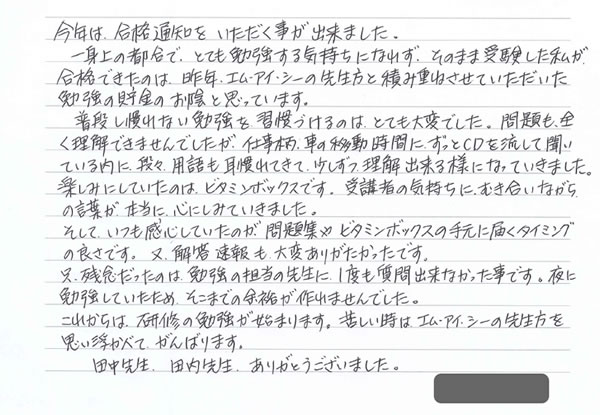 今年は、合格通知を いただく事が出来ました。
一身上の都合で、とても勉強する気持ちになれず、そのまま受験した私が、
合格できたのは、昨年、エム・アイ・シーの先生方と積み重ねさせていただいた
勉強の貯金のお陰と思っています。
普段し慣れない勉強を習慣づけるのは、とても大変でした。問題も、全
く理解できませんでしたが、仕事柄、車の移動時間に、ずっとCDを流して聞い
ている内に、段々、用語も耳慣れてきて、少しずつ理解出来る様になっていきました。
楽しみにしていたのは、ビタミンボックスです。受講者の気持ちに、むき合いながら
の言葉が、本当に、心にしみていきました。
そして、いつも感心していたのが、問題集やビタミンボックスの手元に届くタイミング
の良さです。又、解答速報も、大変ありがたかったです。
又、残念だったのは、勉強の担当の先生に、1度も質問出来なかった事です。夜に
勉強していたため、そこまでの余裕が作れませんでした。
これからは、研修の勉強が始まります。苦しい時は、エム・アイ・シーの先生方を
思い浮かべて、がんばります。
田中先生、田内先生、ありがとうございました。